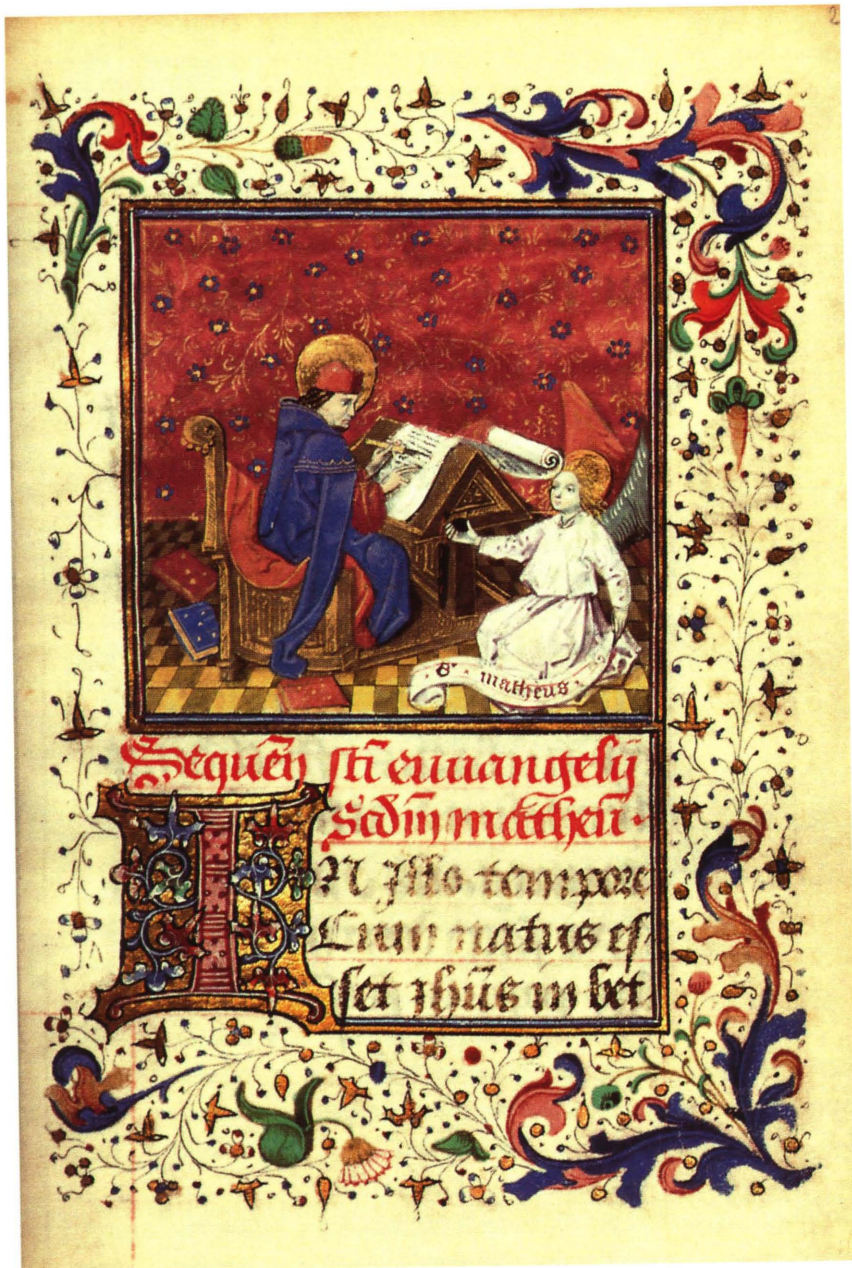 S. matheus.
Sequēn sc̄ti euuangelij
Scd̄m matheū.
IN Illo tempore
Cum natus es
set ihūs in bet